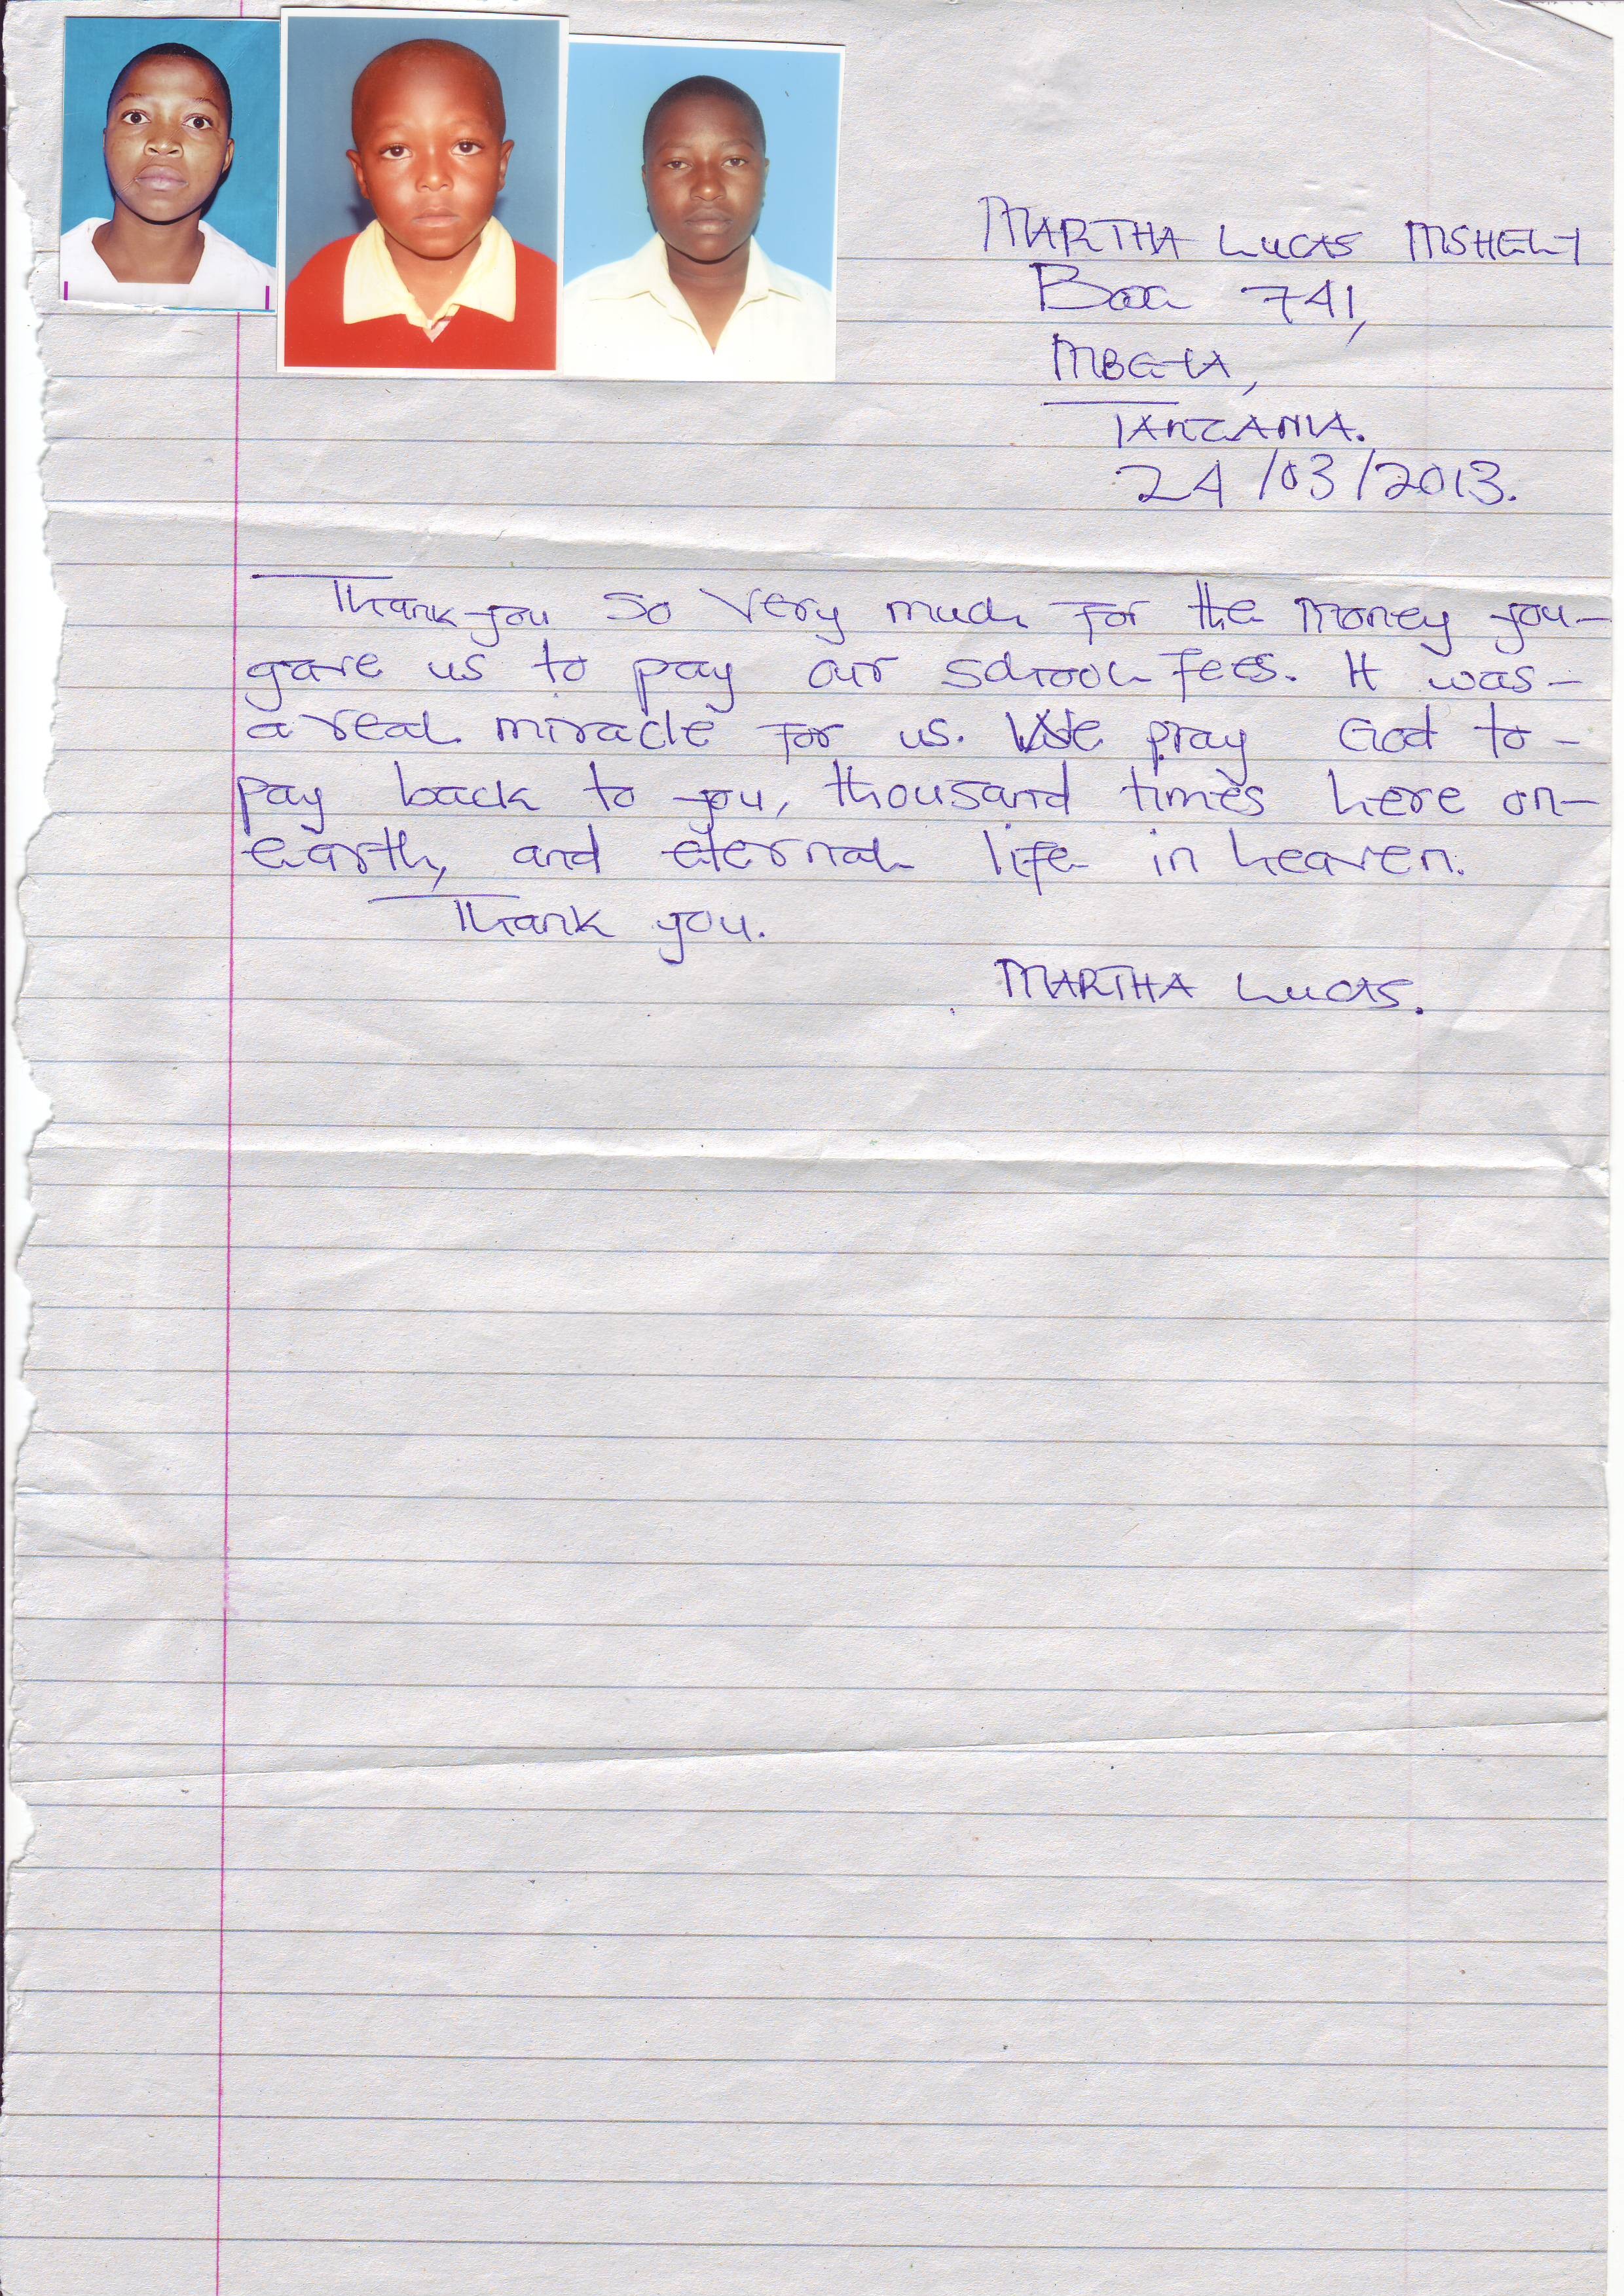 MARTHA LUCAS MSHELI
Box 741,
MBEYA,
TANZANIA.
24/03/2013.
Thank you so very much for the money you-
gave us to pay our school fees. It was-
a real miracle for us. We pray God to-
pay back to you, thousand times here on-
earth, and eternal life in heaven.
Thank you.
MARTHA LUCAS.